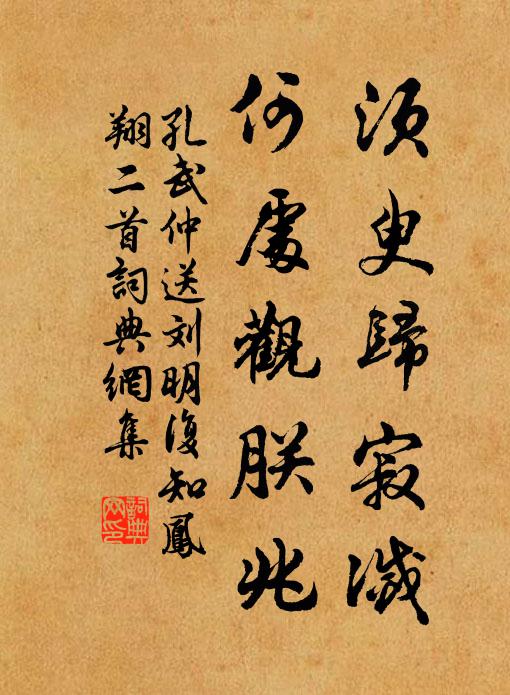 須臾歸寂滅
何處觀朕兆
孔武仲送刘明復知鳳
翔二首詞典網集
詞典
网印